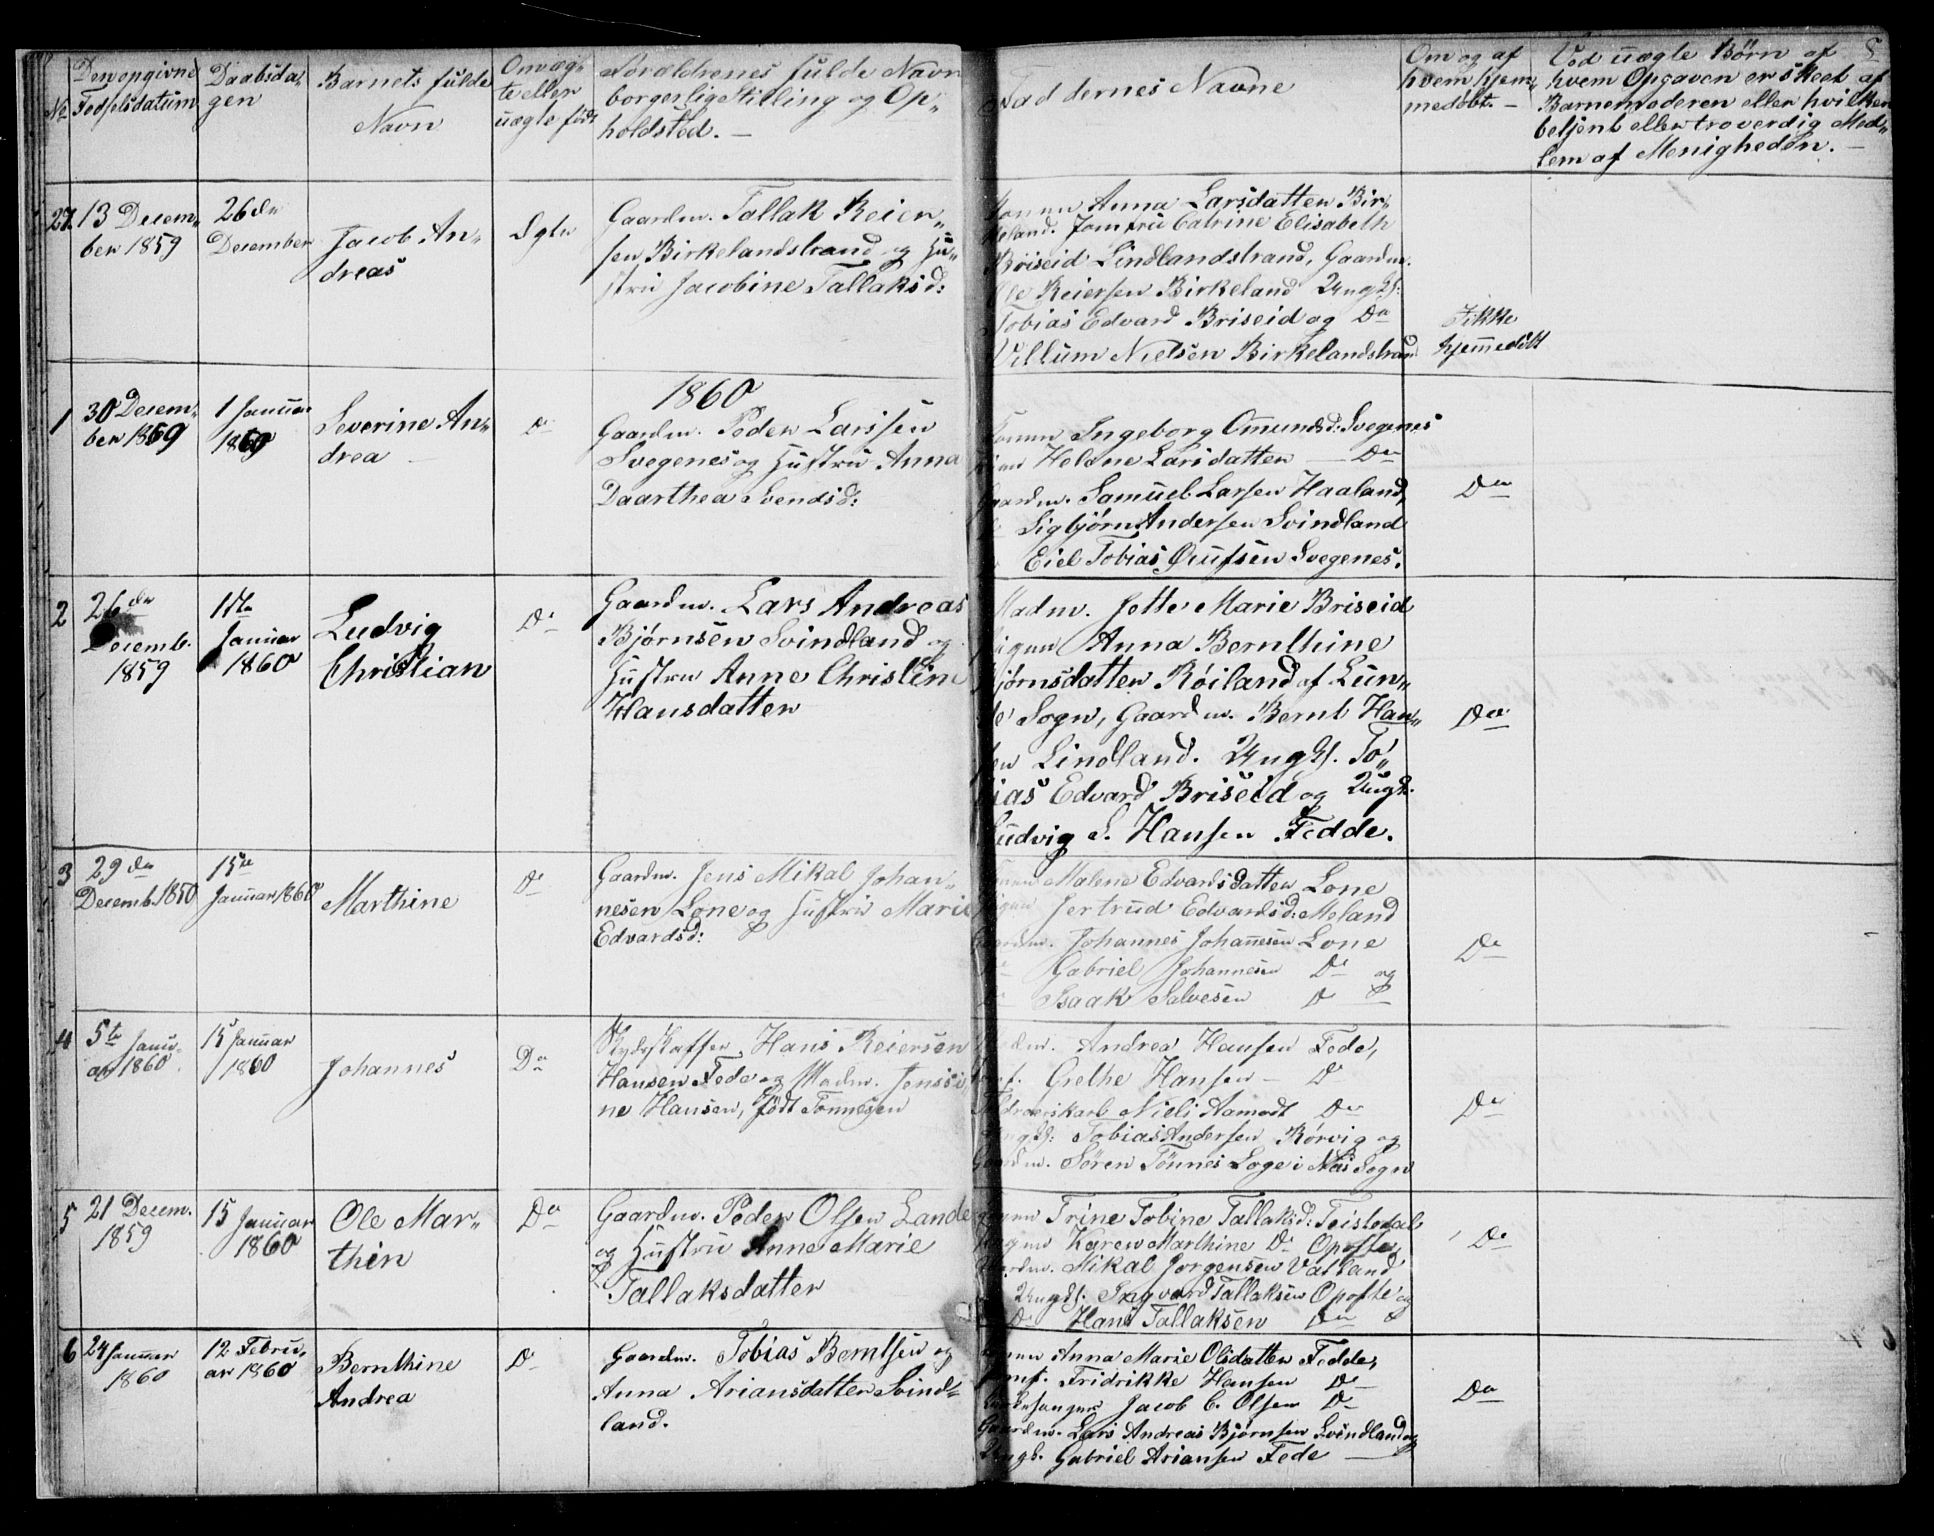 No
Den opgivne
Fødselsdatum
Daabsda-
gen
Barnets fulde
Navn
Om æg-
te eller
uægte født
Forældrenes fulde Navn
borgerlig Stilling og Op-
holdsted. —
Faddernes Navne
Om og af
hvem hjem-
medøbt. —
Ved uægte Børn af
hvem Opgaven er skeet af
Barnemoderen eller hvilken
betjent eller troverdig Med-
lem af Menigheden. —
27.
13 Decem-
ber 1859
26de
December
Jacob An-
dreas
Ægte
Gaardm. Tallak Reier-
sen Birkelandstrand og Hu-
stru Jacobine Tallaksd:
Konen Anna Larsdatter Bir-
keland. Jomfru Catrine Elisabeth
Briseid Lindlandstrand, Gaardm.
Ole Reiersen Birkeland Ungk:
Tobias Edvard Briseid og Do
Villum Nielsen Birkelandstrand
Ikke
hjemmedøbt
1860
1
30 Decem-
ber 1859
1 Januar
1860
Severine An-
drea —
Do
Gaardm. Peder Larssen
Svegenes og Hustru Anna
Daarthea Svendsd:
Konen Ingeborg Omundsd: Svegenes
Helene Larsdatter — Do
Gaardm. Samuel Larsen Haaland,
Sigbjørn Andersen Svindland
Eiel Tobias Svegenes.
Do
2
26de
Decemb.
1859
1ste
Januar
1860
Ludvig
Christian
Do
Gaardm. Lars Andreas
Bjørnsen Svindland og
Hustru Anne Christine
Hansdatter
Madm. Jette Marie Briseid
Pigen Anna Bernthine
Bjørnsdatter Røiland af Lun-
de Sogn, Gaardm. Bernt Han-
sen Lindland. Ungk. To-
bias Edvard Briseid og Ungk.
Ludvig S. Hansen Fedde.
Do
3
29de
Decemb. 1850
15de
Januar 1860
Marthine
Do
Gaardm. Jens Mikal Johan-
nesen Lone og Hustru Marie
Edvardsd:
Konen Malene Edvardsdatter Lone
Pigen Jertrud Edvardsd: Meland
Gaardm. Johannes Johannesen Lone
Do Gabriel Johannesen Do og
Do Isaak Salvesen Do
Do
4
5te Janu-
ar 1860
15 Januar
1860
Johannes
Do
Skydsskaffer Hans Reiersen
Hansen Fede og Madm. Jenssi-
ne Hansen, født Tønnesen
Madm. Andrea Hansen Fede,
Jomf. Grethe Hansen — Do
Niels Aamodt Do
Ungk: Tobias Andersen Rørvig og
Gaardm. Søren Tønnes Loge i Næs Sogn
Do
5
21 Decem.
1859
15 Januar
1860
Ole Mar-
thin
Do
Gaardm. Peder Olsen Lande
og Hustru Anne Marie
Tallaksdatter
Konen Trine Tobine Tallaksd: Teistedal
Pigen Karen Marthine Do Opofte,
Gaardm. Mikal Jørgensen Vatland
Ungk. Ingvard Tallaksen Opofte og
Do Hans Tallaksen Do
Do
6
24 Januar
1860
12 Febru-
ar 1860
Bernthine
Andrea
Do
Gaardm. Tobias Berntsen og
Anna Ariansdatter Svind-
land.
Konen Anna Marie Olsdatter Fedde,
Jomf. Fridrikke Hansen Do
Kirkesanger Jacob C. Olsen Do
Gaardm. Lars Andreas Bjørnsen Svindland og
Ungk. Gabriel Ariansen Fede —
Do